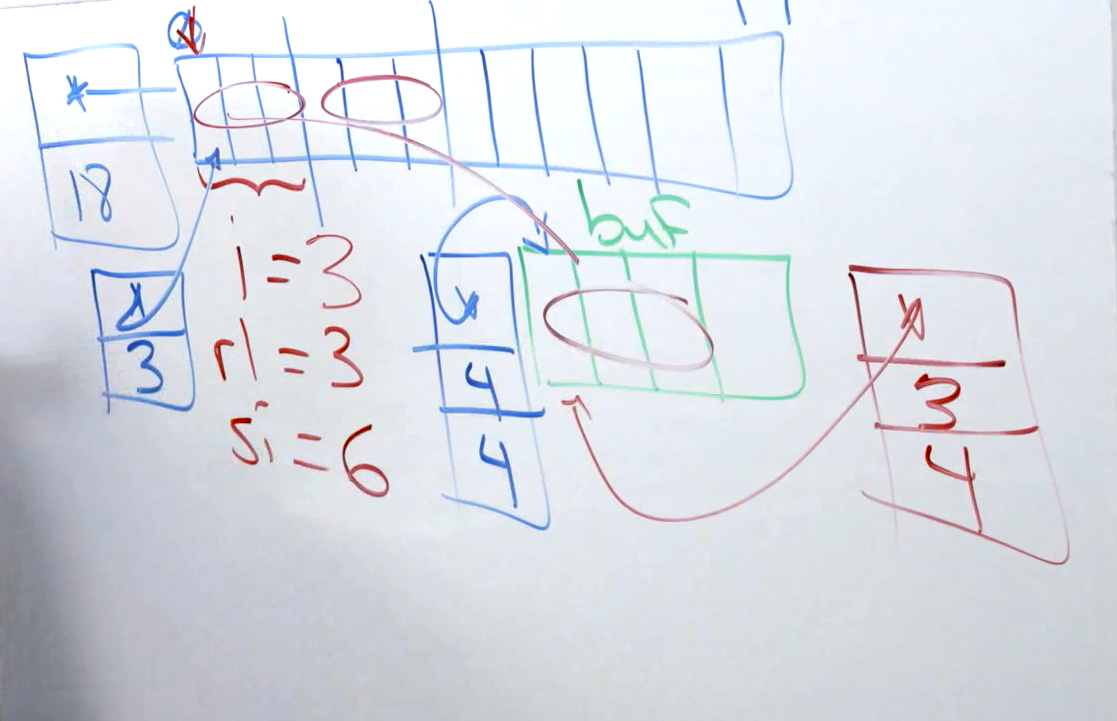 *
18
*
3
l = 3
rl = 3
si = 6
buf
*
4
4
*
3
4